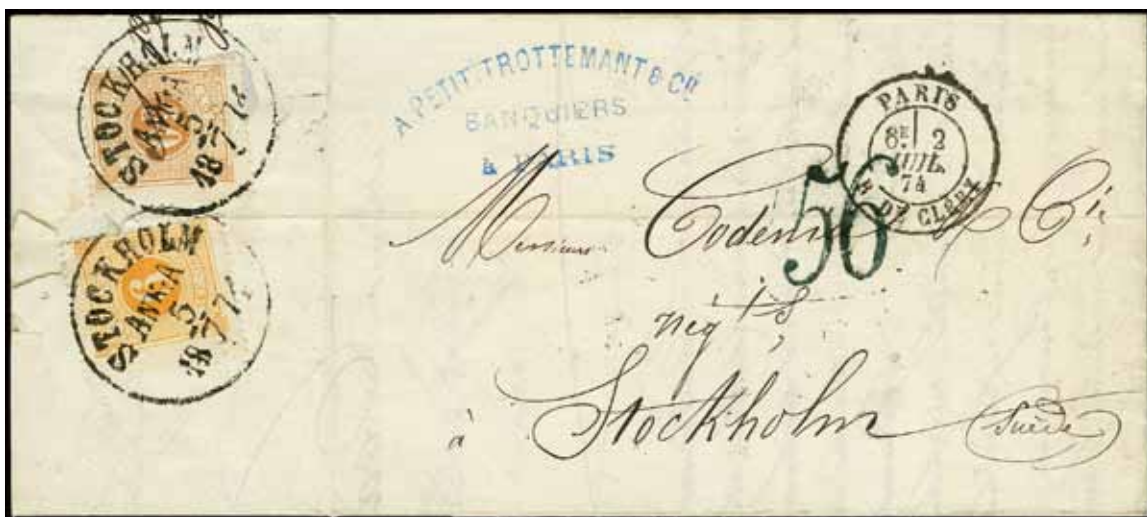 STOCKHOLM
ANK.A
5
18 7 74
STOCKHOLM
ANK.A
5
18 7 74
A. PETIT TROTTEMANT & CIE
BANQUIERS
à PARIS
PARIS
8E 2
JUIL.
74
R. DE CLÉRY
56
Messieurs & Cie,
négts,
à Stockholm (Suède)